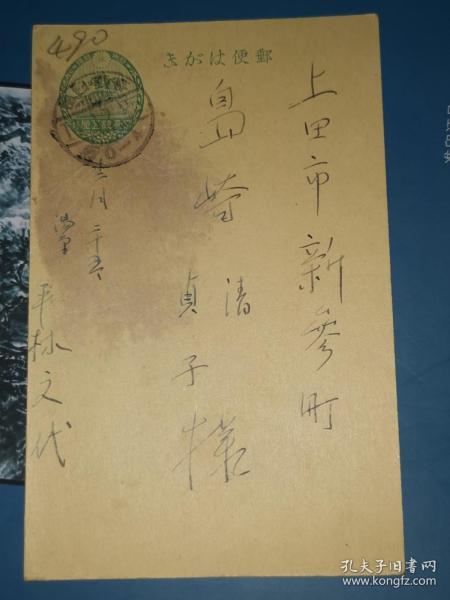 490
郵便はがき
上田市新参町
島崎
清
貞子様
十二月二十五
平林文代
孔夫子旧书网
www.kongfz.com